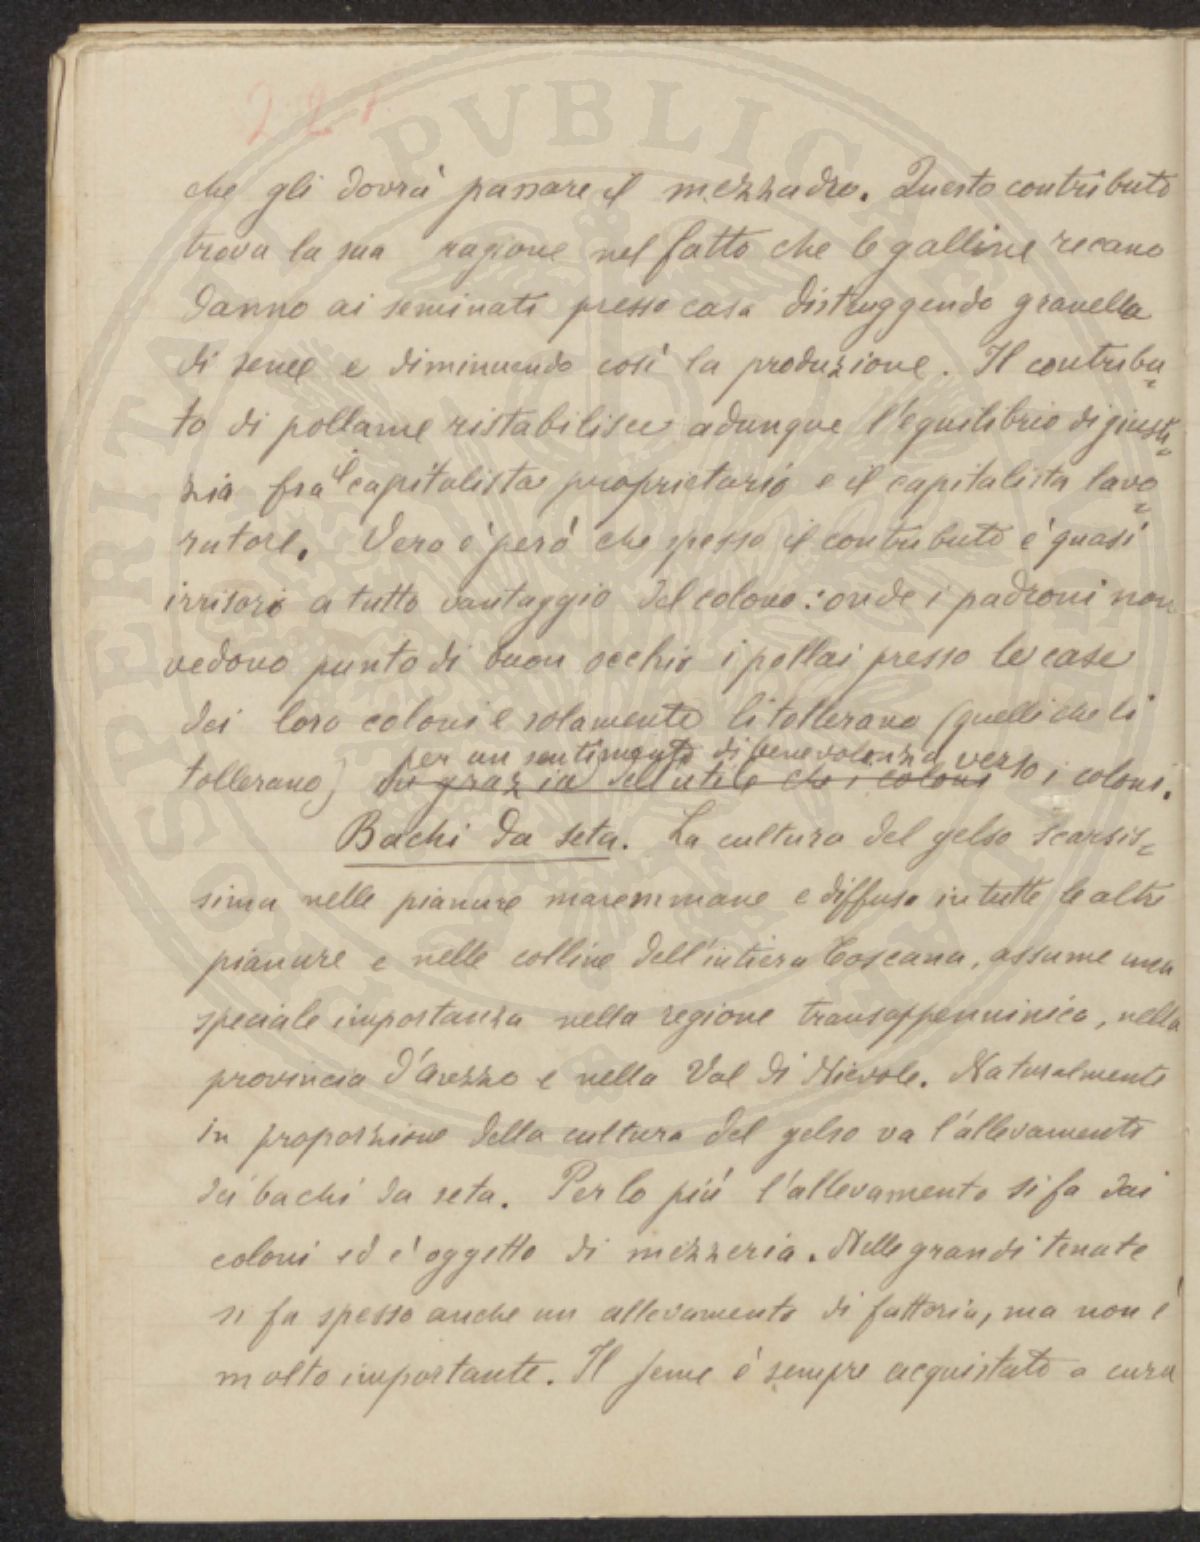 221
che gli dovrà passare il mezzadro. Questo contributo
trova la sua ragione nel fatto che le galline recano
danno ai seminati presso casa distruggendo granella
di seme e diminuendo così la produzione. Il contribu=
to di pollame ristabilisce adunque l'equilibrio di giusti=
zia fra il capitalista proprietario e il capitalista lavo=
ratore. Vero è però che spesso il contributo è quasi
irrisorio a tutto vantaggio del colono: onde i padroni non
vedono punto di buon occhio i pollai presso le case
dei loro coloni e solamente li tollerano (quelli che li
per un sentimento di benevolenza verso
tollerano) in grazia dell'utile che i coloni i coloni.
Bachi da seta. La cultura del gelso scarsis=
sima nelle pianure maremmane e diffusa in tutte le altre
pianure e nelle colline dell'intiera Toscana, assume una
speciale importanza nella regione transappenninica, nella
provincia d'Arezzo e nella Val di Nievole. Naturalmente
in proporzione della cultura del gelso va l'allevamento
dei bachi da seta. Per lo più l'allevamento si fa dai
coloni ed è oggetto di mezzeria. Nelle grandi tenute
si fa spesso anche un allevamento di fattoria, ma non è
molto importante. Il seme è sempre acquistato a cura
PROSPERITATI PVBLICAE